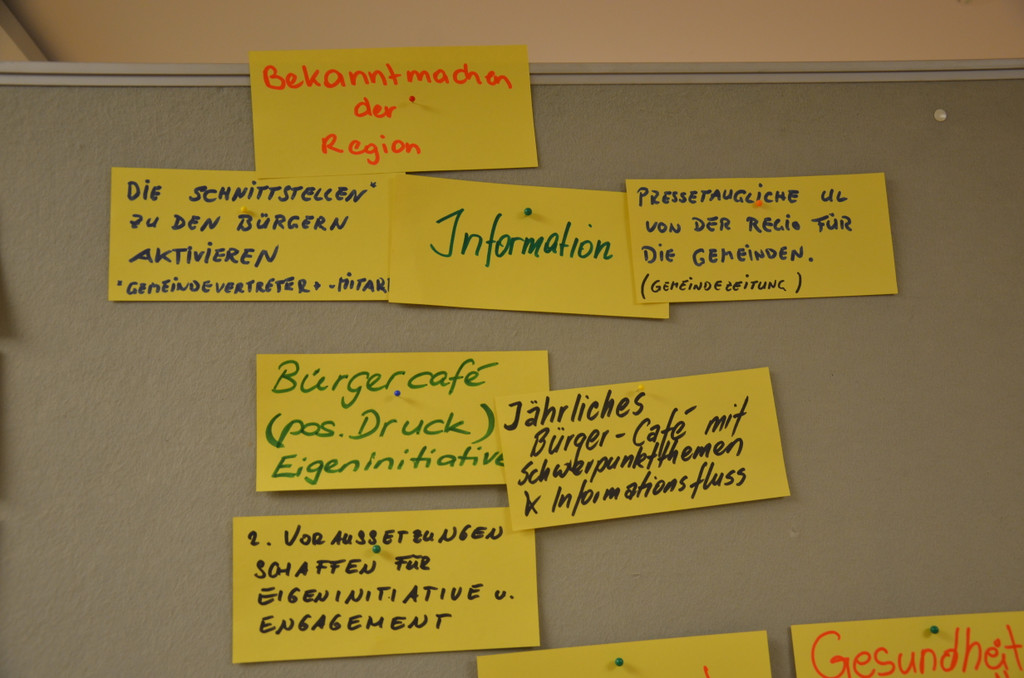 Bekanntmachen
der
Region
DIE SCHNITTSTELLEN*
ZU DEN BÜRGERN
AKTIVIEREN
*GEMEINDEVERTRETER + -MITAR
Information
PRESSETAUGLICHE UL
VON DER REGIO FÜR
DIE GEMEINDEN.
(GEMEINDEZEITUNG)
Bürgercafé
(pos. Druck)
Eigeninitiative
Jährliches
Bürger-Café mit
Schwerpunktthemen
& Informationsfluss
2. VORAUSSETZUNGEN
SCHAFFEN FÜR
EIGENINITIATIVE U.
ENGAGEMENT
Gesundheit